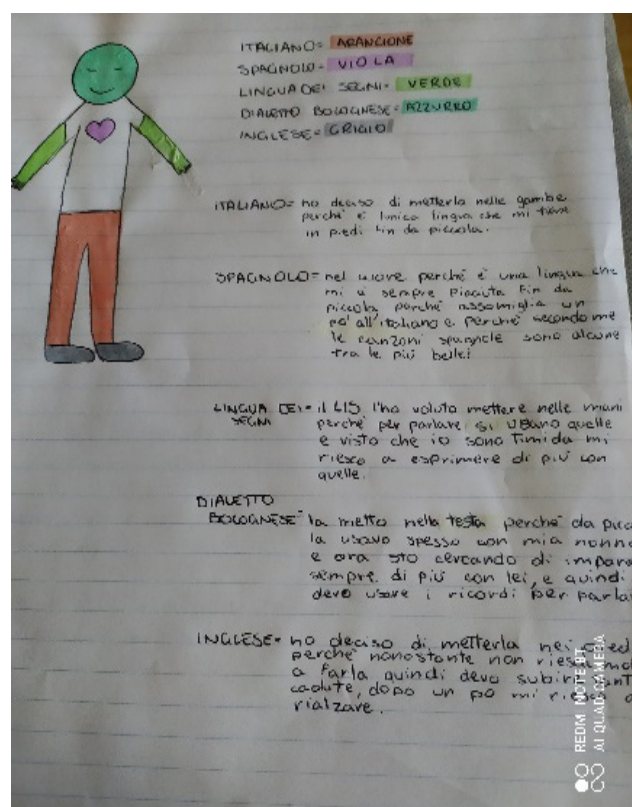 ITALIANO= ARANCIONE
SPAGNOLO= VIOLA
LINGUA DEI SEGNI= VERDE
DIALETTO BOLOGNESE= AZZURRO
INGLESE= GRIGIO
ITALIANO= ho deciso di metterla nelle gambe
perché è l'unica lingua che mi tiene
in piedi fin da piccola.
SPAGNOLO= nel cuore perché è una lingua che
mi è sempre piaciuta fin da
piccola perché assomiglia un
po' all'italiano e perché secondo me
le canzoni spagnole sono alcune
tra le più belle!
LINGUA DEI= il LIS l'ho voluto mettere nelle mani
SEGNI perché per parlare si usano quelle
e visto che io sono timida mi
riesco a esprimere di più con
quelle.
DIALETTO
BOLOGNESE= la metto nella testa perché da
la usavo spesso con mia nonna
e ora sto cercando di
sempre di più con lei, e quindi
devo usare i ricordi per
INGLESE= ho deciso di metterla nei
perché nonostante non
a farla quindi devo subire
cadute, dopo un po mi riesco
rialzare.
REDMI NOTE 8T
AI QUAD CAMERA